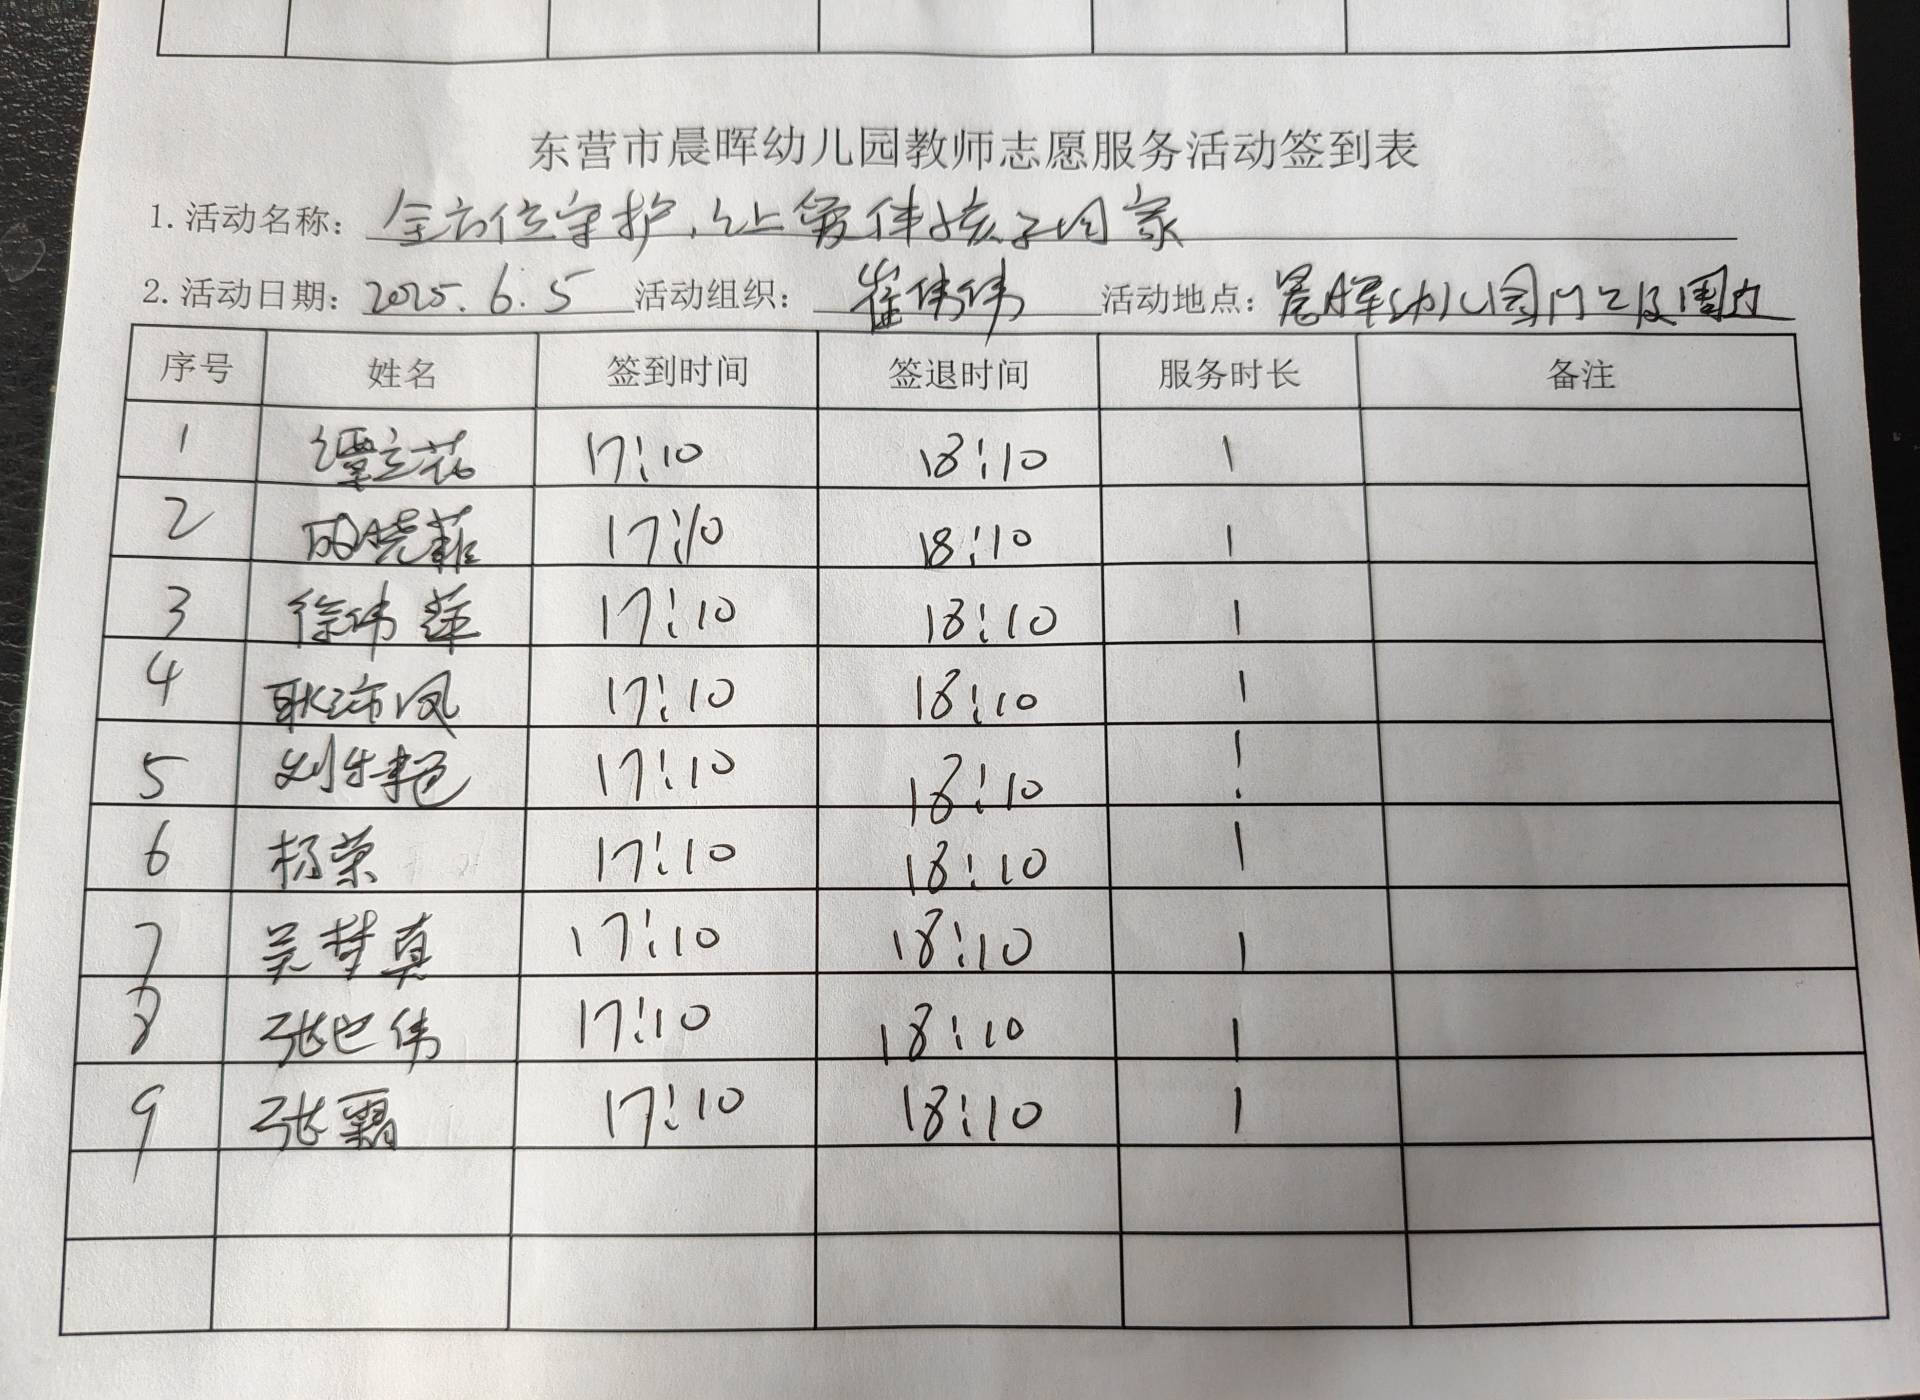 东营市晨晖幼儿园教师志愿服务活动签到表
1.活动名称：全方位守护，让爱伴孩子回家
2.活动日期：2025.6.5 活动组织：崔伟伟 活动地点：晨晖幼儿园门口及周边
序号 姓名 签到时间 签退时间 服务时长 备注
1 谭立花 17:10 18:10 1
2 晓菲 17:10 18:10 1
3 徐伟萍 17:10 18:10 1
4 耿沛凤 17:10 18:10 1
5 刘 17:10 18:10 1
6 杨荣 17:10 18:10 1
7 吴梦真 17:10 18:10 1
8 张 伟 17:10 18:10 1
9 张霭 17:10 18:10 1